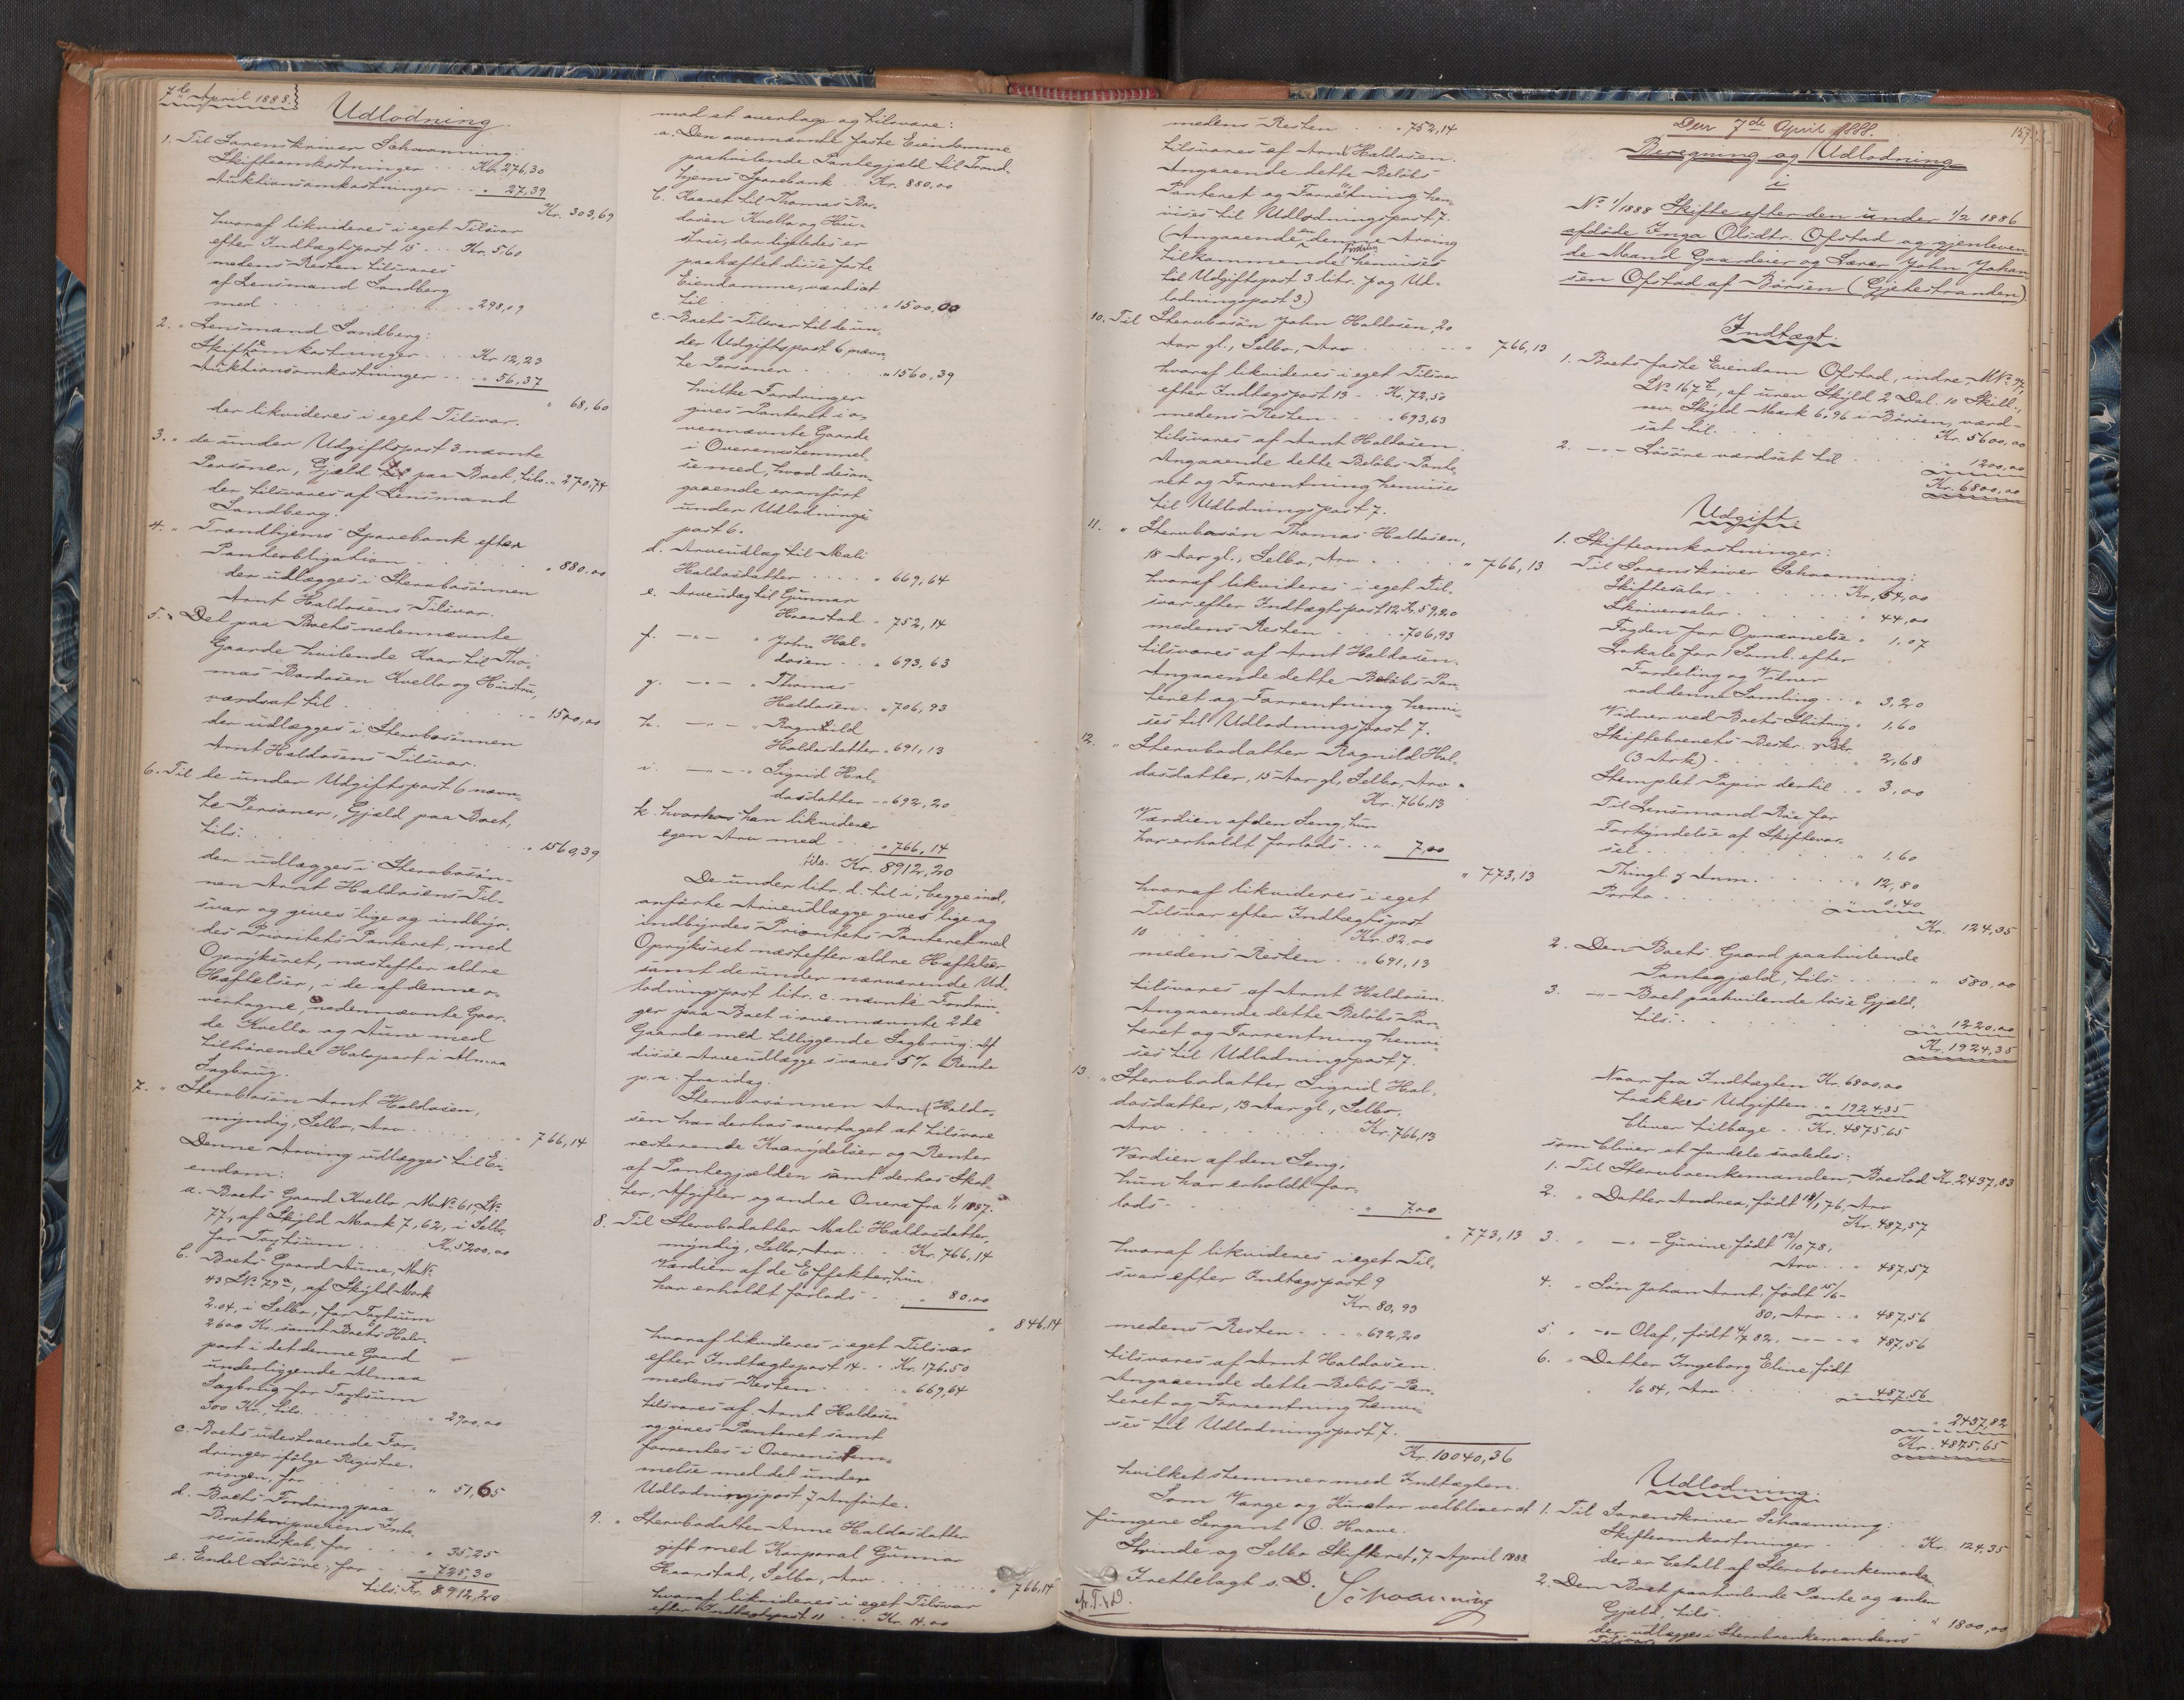 7de April 1888.
Udlodning.
1. Til Sorenskriver Schwanning:
Skifteomkostninger . . . Kr. 276,30
Auktionsomkostninger . . „ 27,39
Kr. 303,69
hvoraf likvideres i eget Tilsvar
efter Indtægtspost 15 . . . Kr. 5.60
medens Resten tilsvares
af Lensmand Sandberg
med . . . „ 298,09
2. „ Lensmand Sandberg:
Skifteomkostninger . . . Kr 12,23
Auktionsomkostninger . . . „ 56,37
„ 68,60
der likvideres i eget Tilsvar.
3. „ de under Udgiftspost 3 nævnte
Personer, Gjæld paa Boet, tils. „ 270,74
der tilsvares af Lensmand
Sandberg.
4. „ Trondhjems Sparebank efter
Panteobligation . . . „ 880.00
der udlægges i Stervbosönnen
Arnt Haldosens Tilsvar.
5. „ Det paa Boets nedennævnte
Gaarde hvilende Kaar til Tho-
mas Bardosen Kvello og Hustru,
værdsat til . . . „ 1500,00
der udlægges i Stervbosönnen
Arnt Haldosens Tilsvar.
6. Til de under Udgiftspost 6 nævn-
te Personer, Gjæld paa Boet,
tils: . . . „ 1560,39
der udlægges i Stervbosön-
nen Arnt Haldosens Til-
svar og gives lige og indbyr-
des Prioritets Panteret, med
Opryksret, næstefter ældre
Hæftelser, i de af denne o-
vertagne, nedennævnte Gaar-
de Kvello og Aune med
tilhörende Halvpart i Almaa
Sagbrug.
7. „ Stervbosön Arnt Haldosen,
myndig, Selbo, Arv . . . „ 766,14
Denne Arving udlægges til Ei-
endom:
a. Boets Gaard Kvello, MNo 61, LNo
77, af Skyld Mark 7,62, i Selbo,
for Taxtsum . . . Kr. 5200,00
b. Boets Gaard Aune, MNo
43 LNo 79a, af Skyld Mark
2.04, i Selbo, for Taxtsum
2600 Kr. samt Boets Halv-
part i det denne Gaard
underliggende Almaa
Sagbrug for Taxtsum
300 Kr., tils. . . . „ 2900,00
c. Boets udestaaende For-
dringer ifölge Registre-
ringen, for . . . „ 51,65
d. Boets Fordring paa
Inte-
ressentskab, for . . . „ 35,25
e. Endel Lösöre, for . . . „ 725,30
tils. Kr. 8912,20
mod at overtage og tilsvare:
a. Den ovennævnte faste Eiendomme
paahvilende Pantegjæld til Trond-
hjems Sparebank . . Kr. 880,00
b. Kaaret til Thomas Bar-
dosen Kvello og Hu-
stru, der ligeledes er
paahæftet disse faste
Eiendomme, værdsat
til . . . „ 1500,00
c. Boets Tilsvar til de un-
der Udgiftspost 6 nævn-
te Personer . . . „ 1560,39
hvilke Fordringer
gives Panteret i o-
vennævnte Gaarde
i Overensstemmel-
se med, hvad desan-
gaaende er anfört
under Udlodnings-
post 6.
d. Arveudlæg til Mali
Haldosdatter . . . . „ 669,64
e. Arveudlæg til Gunnar
Haarstad „ 752,14
f. —„— „ John Hal-
dosen . . „ 693,63
g. —„— „ Thomas
Haldosen . „ 706,93
h. —„— „ Ragnhild
Haldosdatter „ 691,13
i. —„— „ Sigrid Hal-
dosdatter „ 692,20
k. hvorhos han likviderer
egen Arv med . . „ 766,14
tils. Kr. 8912,20
De under litr. d. til i, begge incl.,
anförte Arveudlægge gives lige og
indbyrdes Prioritets Panteret med
Opryksret næstefter ældre Hæftelser
samt de under nærværende Ud-
lodningspost litr. c. nævnte Fordrin-
ger paa Boet i ovennævnte 2de
Gaarde med tilliggende Sagbrug. Af
disse Arveudlægge svares 5% Rente
p. a. fra idag.
Stervbosönnen Arnt Haldo-
sen har derhos overtaget at tilsvare
resterende Kaarydelser og Renter
af Pantegjælden samt derhos Skat-
ter, Afgifter og andre Onera fra 1/1 1887.
8. Til Stervbodatter Mali Haldosdatter,
myndig, Selbo, Arv . . . Kr. 766,14
Værdien af de Effekter, hun
har erholdt forlods . . . „ 80,00
„ 846,14
hvoraf likvideres i eget Tilsvar
efter Indtægtspost 14 . . Kr. 176.50
medens Resten . . . „ 669,64
tilsvares af Arnt Haldosen
og gives Panteret samt
forrentes i Overensstem-
melse med det under
Udlodningspost 7 Anförte.
9. „ Stervbodatter Anne Haldosdatter
gift med Korporal Gunnar
Haarstad, Selbo, Arv . . . „ 766,14
hvoraf likvideres i eget Tilsvar
efter Indtægtspost 11 . . . Kr. 14.00
medens Resten . . . „ 752,14
tilsvares af Arnt Haldosen.
Angaaende dette Belöbs
Panteret og Forrentning hen-
vises til Udlodningspost 7.
(Angaaende en denne Arving
tilkommende Fordring henvises
til Udgiftspost 3 litr. p og Ud-
lodningspost 3.)
10. Til Stervbosön John Haldosen, 20
Aar gl., Selbo, Arv . . . „ 766,13
hvoraf likvideres i eget Tilsvar
efter Indtægtspost 13 . . Kr. 72,50
medens Resten . . . „ 693,63
tilsvares af Arnt Haldosen.
Angaaende dette Belöbs Pante-
ret og Forrentning henvises
til Udlodningspost 7.
11. „ Stervbosön Thomas Haldosen,
18 Aar gl., Selbo, Arv . . . „ 766,13
hvoraf likvideres i eget Til-
svar efter Indtægtspost 12 Kr. 59,20
medens Resten . . . „ 706,93
tilsvares af Arnt Haldosen.
Angaaende dette Belöbs Pan-
teret og Forrentning henvi-
ses til Udlodningspost 7.
12. „ Stervbodatter Ragnild Hal-
dosdatter, 15 Aar gl., Selbo, Arv „
Kr. 766,13
Værdien af den Seng, hun
har erholdt forlods . . „ 7,00
„ 773,13
hvoraf likvideres i eget
Tilsvar efter Indtægtspost
10 . . . Kr. 82,00
medens Resten . . . „ 691,13
tilsvares af Arnt Haldosen.
Angaaende dette Belöbs Pan-
teret og Forrentning henvi-
ses til Udlodningspost 7.
13. „ Stervbodatter Sigrid Hal-
dosdatter, 13 Aar gl., Selbo,
Arv . . . Kr. 766,13
Værdien af den Seng,
hun har erholdt for-
lods . . . „ 7,00
„ 773,13
hvoraf likvideres i eget Til-
svar efter Indtægspost 9
Kr. 80,93
medens Resten . . . „ 692,20
tilsvares af Arnt Haldosen.
Angaaende dette Belöbs Pan-
teret og Forrentning henvi-
ses til Udlodningspost 7.
Kr. 10040,36
hvilket stemmer med Indtægten.
Som Værge og Kurator vedbliver at
fungere Sergeant O. Haave.
Strinde og Selbo Skifteret, 7 April 1888.
Irettelagt s. D.
Schwanning
157
Den 7de April 1888.
Beregning og Udlodning
i
No 1/1888 Skifte efter den under 1/2 1886
afdöde Inga Olsdtr. Ofstad og gjenleven-
de Mand Gaardeier og Lærer John Johan-
sen Ofstad af Börsen (Gjetestranden)
Indtægt.
1. Boets faste Eiendom Ofstad, indre, MNo 97,
LNo 167b, af urev. Skyld 2 Dal. 10 Skill.,
rev. Skyld Mark 6.96 i Börsen, værd-
sat til . . . Kr. 5600,00
2. —„— Lösöre værdsat til . . . „ 1200,00
Kr. 6800,00
Udgift.
1. Skifteomkostninger:
Til Sorenskriver Schwanning:
Skiftesalær . . . Kr. 54,00
Skriversalær . . . „ 44,00
Fogden for Opnævnelse „ 1,07
Lokale for 1 Saml. efter
Fordeling og Vidner
ved denne Samling . . . „ 3,20
Vidner ved Boets Slutning „ 1.60
Skiftebrevets Beskr.
(3 Ark) . . . „ 2,68
Stemplet Papir dertil . . „ 3,00
Til Lensmand Röe for
Forkyndelse af Skiftevar-
sel . . . „ 1.60
Thingl. & Anm. . . . „ 12,80
Porto . . . „ 0,40
Kr. 124,35
2. Den Boets Gaard paahvilende
Pantegjæld, tils. . . . „ 580,00
3. —„— Boet paahvilende löse Gjæld,
tils: . . . „ 1220,00
Kr. 1924,35
Naar fra Indtægten Kr. 6800,00
trækkes Udgiften . „ 1924,35
bliver tilbage . . Kr. 4875,65
som bliver at fordele saaledes:
1. Til Stervboenkemanden, Boeslod Kr. 2437,83
2. „ Datter Andrea, födt 18/1 76, Arv
Kr. 487,57
3. „ —„— Gurine, födt 12/10 78,
Arv . . „ 487,57
4. „ Sön Johan Arnt, födt 15/6
80, Arv . . „ 487,56
5. „ —„— Olaf, födt 4/7 82, —„— „ 487,56
6. „ Datter Ingeborg Eline födt
1/6 84, Arv . . . „ 487,56
„ 2437,82
Kr. 4875,65
Udlodning.
1. Til Sorenskriver Schwanning:
Skifteomkostninger . . . Kr. 124,35
der er betalt af Stervboenkemanden.
2. Den Boet paahvilende Pante og anden
Gjæld, tils. . . . „ 1800,00
der udlægges i Stervboenkemandens
Tilsvar.